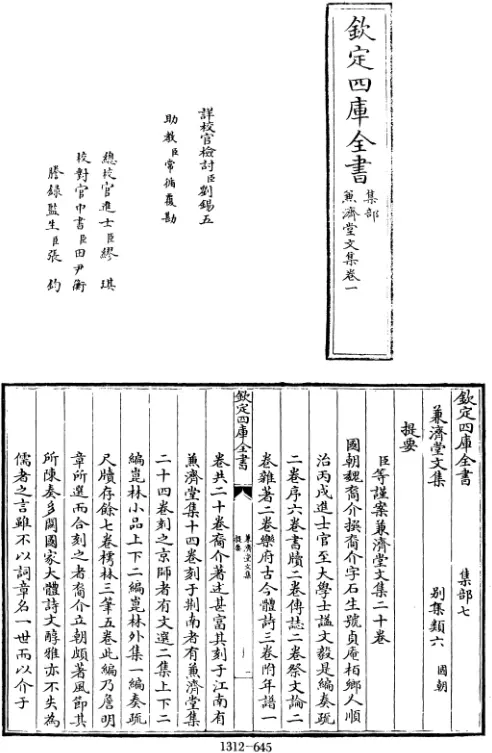 欽定四庫全書
集部
蒹濟堂文集卷一
詳校官檢討臣劉錫五
助教臣常循覆勘
總校官進士臣繆琪
校對官中書臣田尹衡
謄錄監生臣張鈞
欽定四庫全書
集部七
兼濟堂文集
别集類六
國朝
提要
臣等謹案兼濟堂文集二十卷
國朝魏裔介撰裔介字石生號貞庵栢鄉人順
治丙戌進士官至大學士諡文毅是編奏疏
二卷序六卷書牘二卷傳誌二卷祭文論二
卷雜著二卷樂府古今體詩三卷附年譜一
欽定四庫全書
兼濟堂文集
提要
一
卷共二十卷裔介著述甚富其刻于江南有
兼濟堂集十四卷刻于荆南者有兼濟堂集
二十四卷刻之京師者有文選二集上下二
編崑林小品上下二編崑林外集一編奏疏
尺牘存餘七卷樗林三筆五卷此編乃詹明
章所選而合刻之者裔介立朝頗著風節其
所陳奏多闗國家大體詩文醇雅亦不失為
儒者之言雖不以詞章名一世而以介于
1312-645